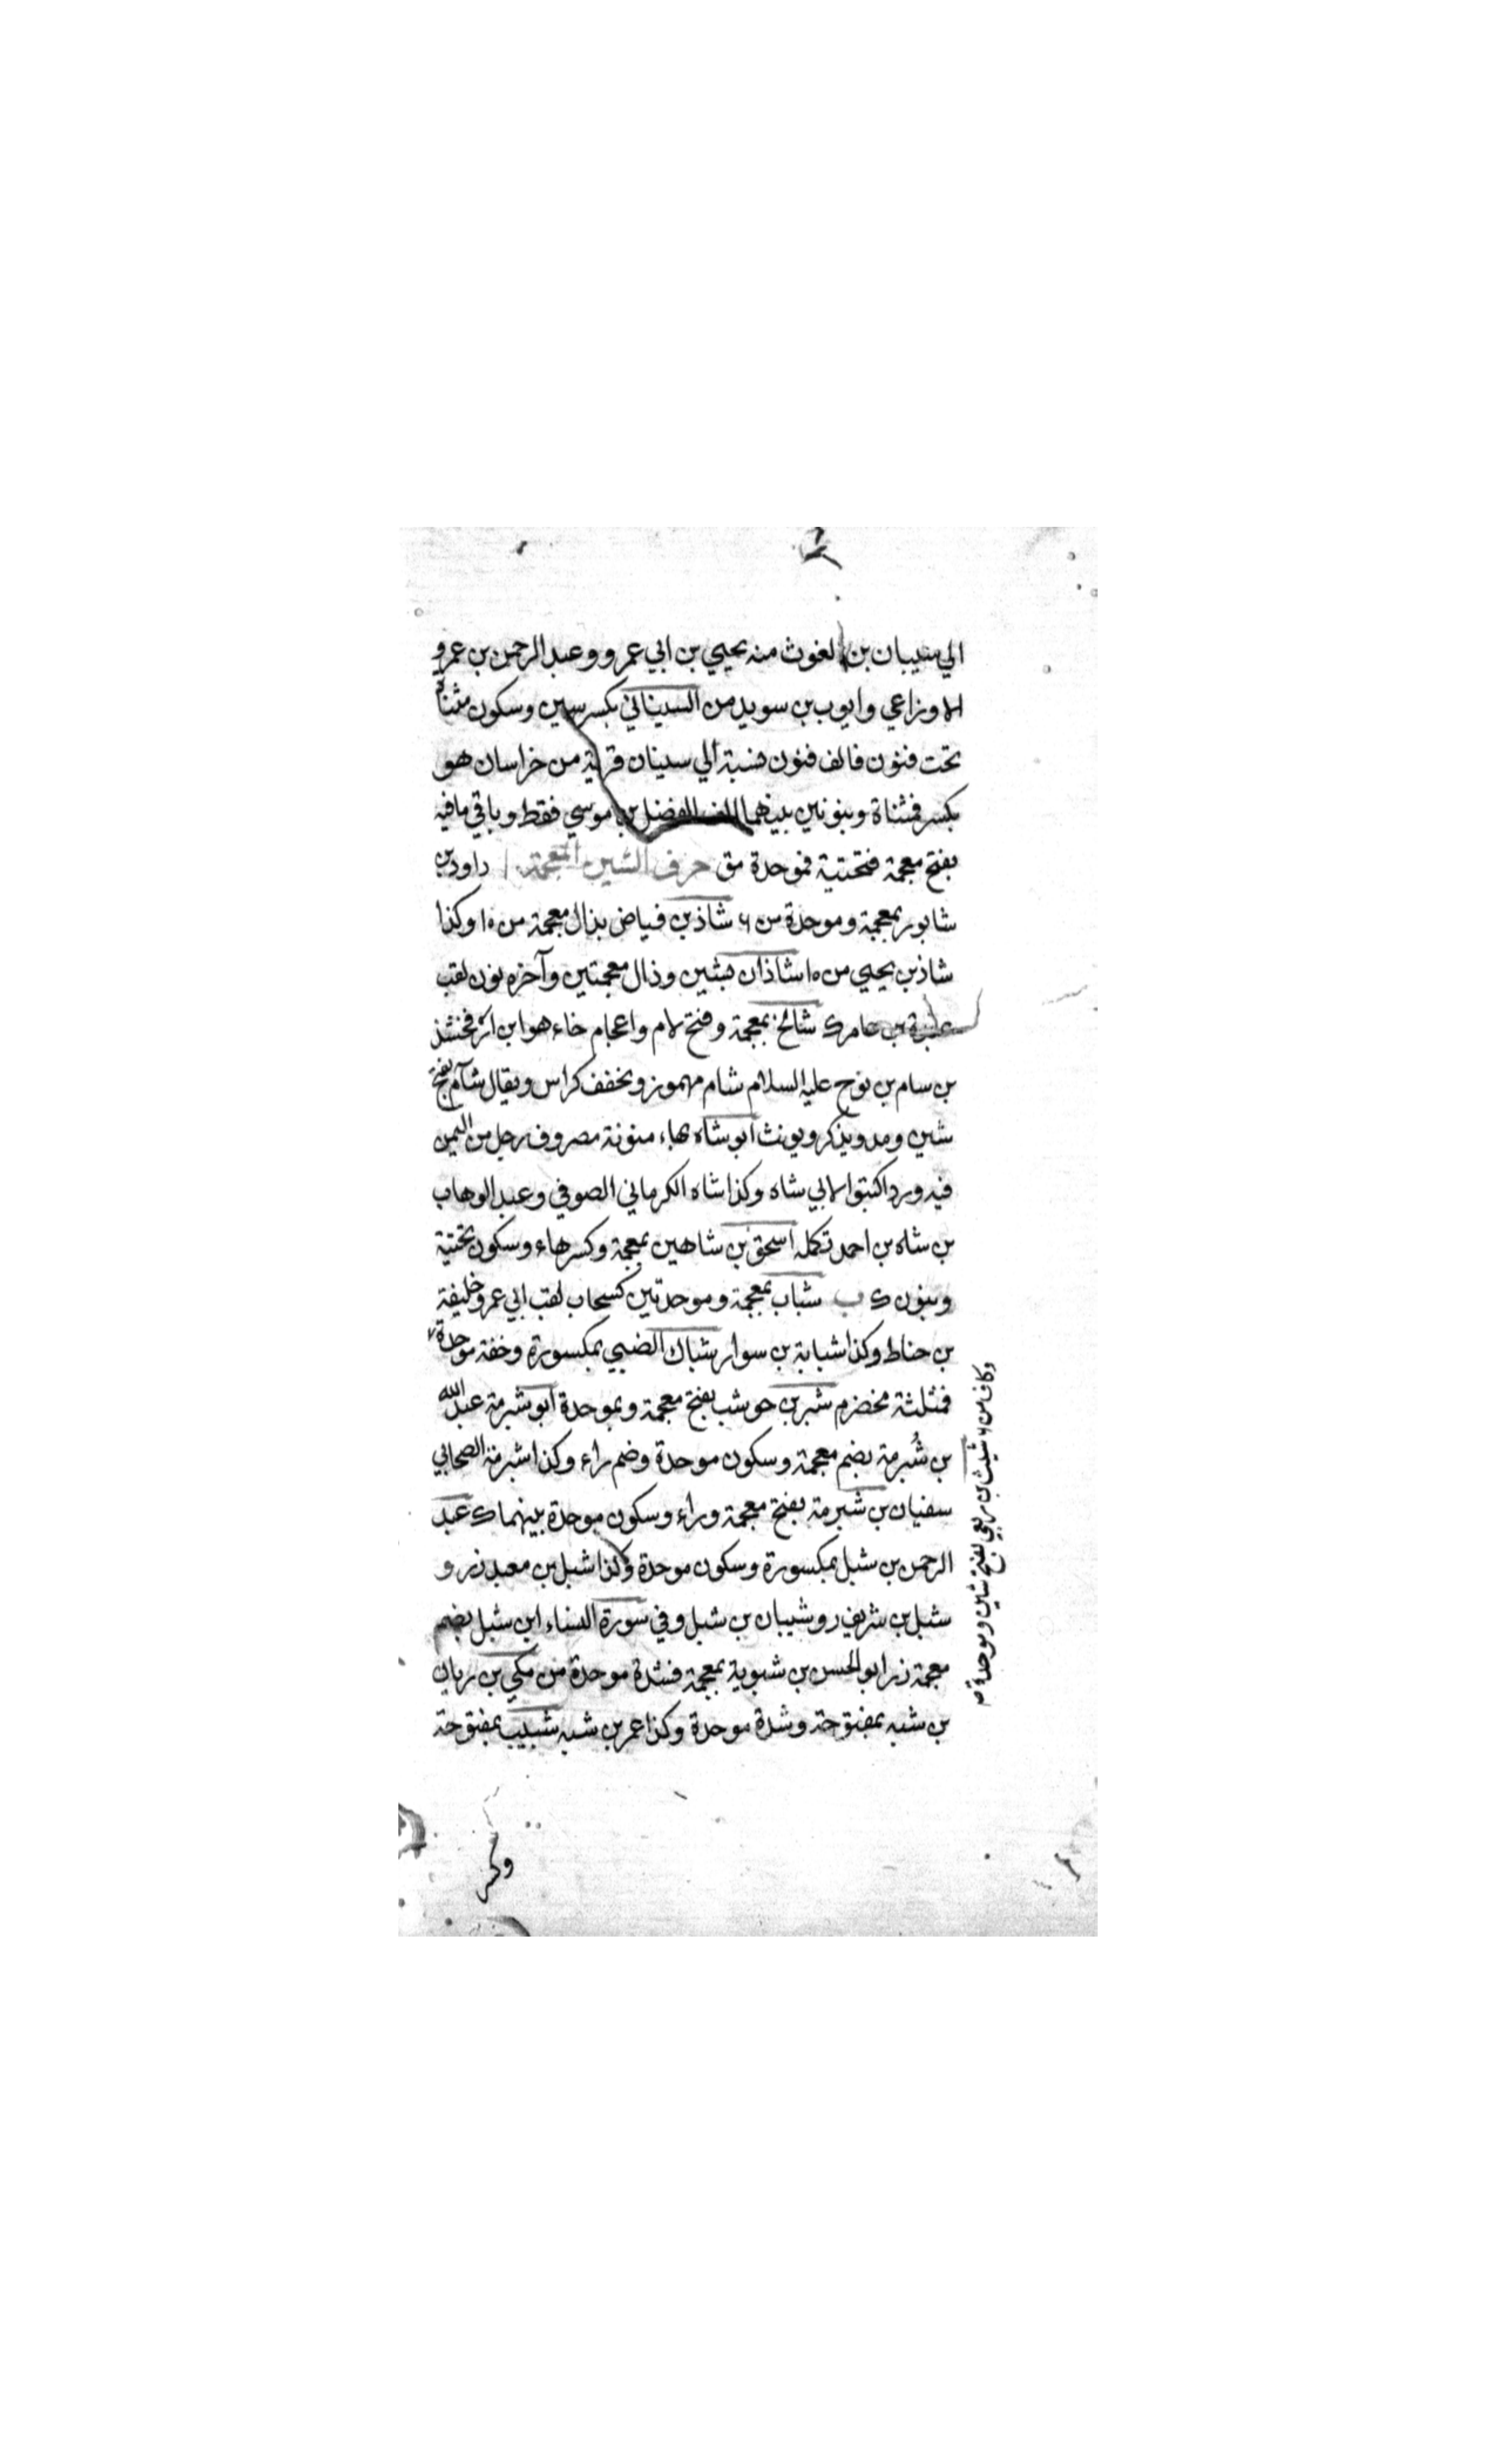 الي سيبان بن الغوث منه يحيي بن ابي عمرو وعبد الرحمن بن عمرو
الاوزاعي وايوب بن سويد من السيناني بكسر سين وسكون مثناة
تحت فنون فالف فنون نسبة الي سينان قرية من خراسان هو
بكسر فمثناة وبنونين بينهما الف الفضل بن موسي فقط وباقي ما فيه
بفتح معجمة فتحتية فموحدة مق حرف الشين المعجمة داود بن
شابور بمعجمة وموحدة من ٦ شاذ بن فياض بذال معجمة من ١٠ وكذا
شاذ بن يحيي من ١٠ شاذان بشين وذال معجمتين وآخره نون لقب
بن عامر ك شالخ بمعجمة وفتح لام واعجام خاء هو ابن ارفخشذ
بن سام بن نوح عليه السلام شام مهموز ويخفف كراس ويقال شآم بفتح
شين ومد ويذكر ويونث ابو شاه بهاء منونة مصروف رجل من اليمن
فيه ورد اكتبوا لابي شاه وكذا شاه الكرماني الصوفي وعبد الوهاب
بن شاه بن احمد تكمله اسحق بن شاهين بمعجمة وكسر هاء وسكون تحتية
وبنون ك ب شباب بمعجمة وموحدتين كسحاب لقب ابي عمرو خليفة
بن حناط وكذا شبابة بن سوار شباك الضبي بمكسورة وخفة موحدة
فمثلثة مخضرم شبر بن حوشب بفتح معجمة وبموحدة ابو شبرمة عبد الله
بن شُبرمة بضم معجمة وسكون موحدة وضم راء وكذا شبرمة الصحابي
سفيان بن شبرمة بفتح معجمة وراء وسكون موحدة بينهما ك عبد
الرحمن بن شبل بمكسورة وسكون موحدة وكذا شبل بن معبد زر و
شبل بن شريف ر وشيبان بن شبل وفي سورة النساء ابن شبل بضم
معجمة زر ابو الحسن بن شبوية بمعجمة فشدة موحدة من مكي بن ريان
بن شبه بمفتوحة وشدة موحدة وكذا عمر بن شبه شبيب بمفتوحة
وكاف من ٦ شبث بن ربعي بفتح شين وموحدة
وكسر